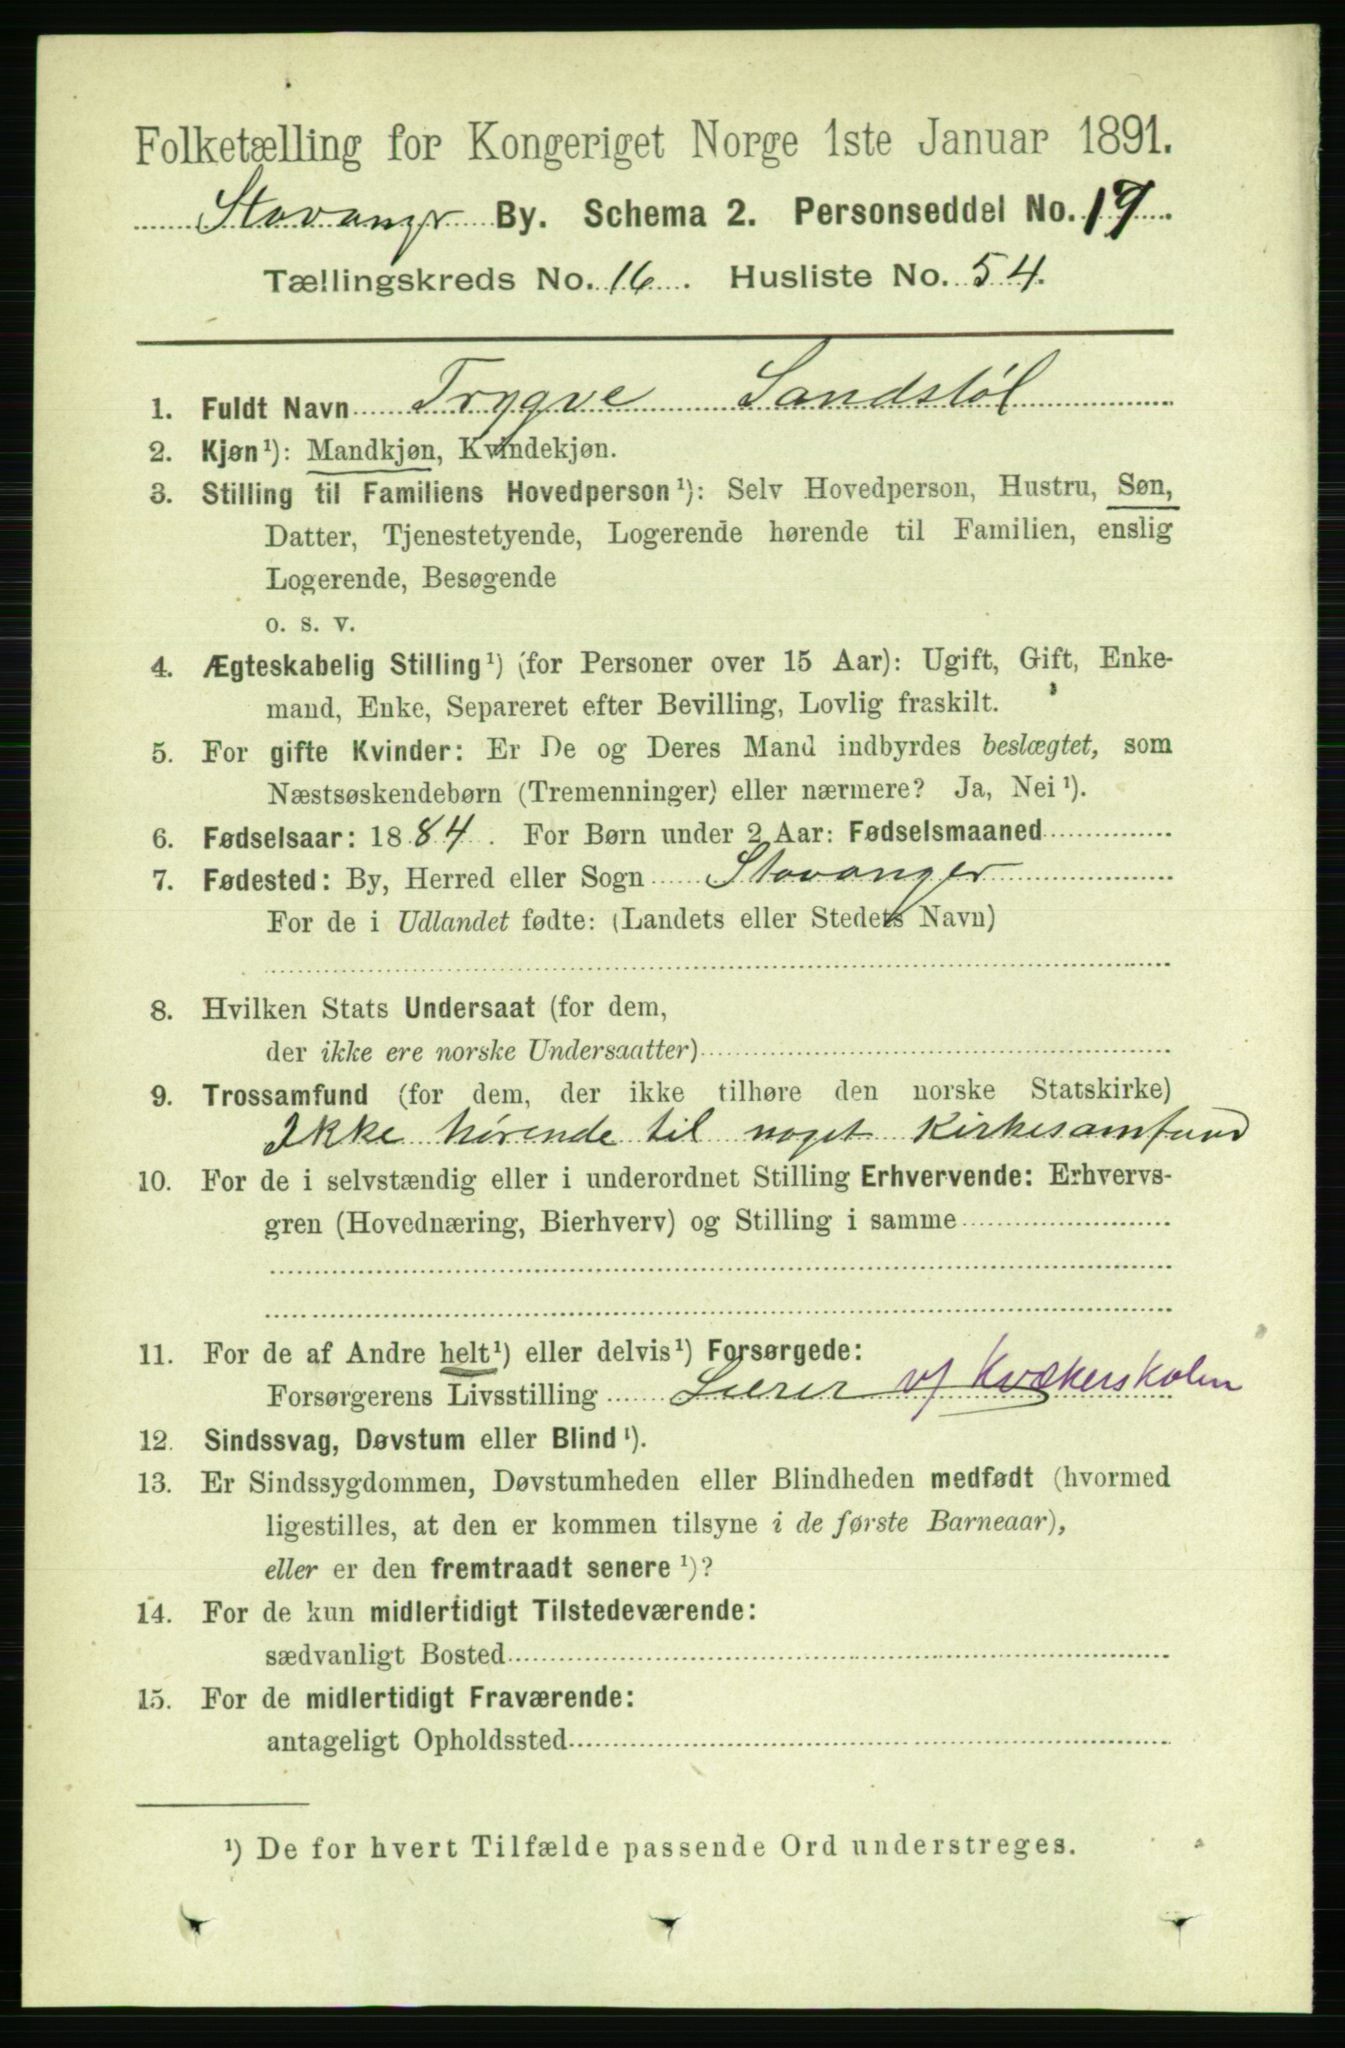 Folketælling for Kongeriget Norge 1ste Januar 1891.
Stavanger By. Schema 2. Personseddel No. 19.
Tællingskreds No. 16. Husliste No. 54.
1. Fuldt Navn Trygve Sandstøl
2. Kjøn¹): Mandkjøn, Kvindekjøn.
3. Stilling til Familiens Hovedperson¹): Selv Hovedperson, Hustru, Søn,
Datter, Tjenestetyende, Logerende hørende til Familien, enslig
Logerende, Besøgende
o. s. v.
4. Ægteskabelig Stilling¹) (for Personer over 15 Aar): Ugift, Gift, Enke-
mand, Enke, Separeret efter Bevilling, Lovlig fraskilt.
5. For gifte Kvinder: Er De og Deres Mand indbyrdes beslægtet, som
Næstsøskendebørn (Tremenninger) eller nærmere? Ja, Nei¹).
6. Fødselsaar: 1884. For Børn under 2 Aar: Fødselsmaaned
7. Fødested: By, Herred eller Sogn Stavanger
For de i Udlandet fødte: (Landets eller Stedets Navn)
8. Hvilken Stats Undersaat (for dem,
der ikke ere norske Undersaatter)
9. Trossamfund (for dem, der ikke tilhøre den norske Statskirke)
Ikke hørende til noget Kirkesamfund
10. For de i selvstændig eller i underordnet Stilling Erhvervende: Erhvervs-
gren (Hovednæring, Bierhverv) og Stilling i samme
11. For de af Andre helt¹) eller delvis¹) Forsørgede:
Forsørgerens Livsstilling Lærer v/ Kvækerskolen
12. Sindssvag, Døvstum eller Blind¹).
13. Er Sindssygdommen, Døvstumheden eller Blindheden medfødt (hvormed
ligestilles, at den er kommen tilsyne i de første Barneaar),
eller er den fremtraadt senere¹)?
14. For de kun midlertidigt Tilstedeværende:
sædvanligt Bosted
15. For de midlertidigt Fraværende:
antageligt Opholdssted
¹) De for hvert Tilfælde passende Ord understreges.